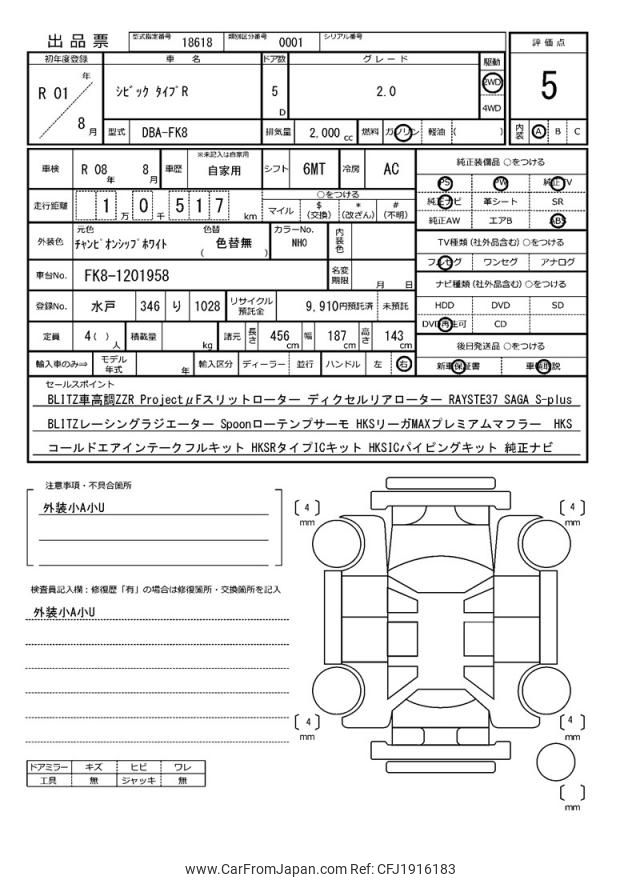 出品票
型式指定番号 18618 類別区分番号 0001 シリアル番号
初年度登録 車名 ドア数 グレード 駆動 評価点
R 01 年 8 月 シビック タイプR 5 D 2.0 2WD 4WD 5
型式 DBA-FK8 排気量 2,000 cc 燃料 ガソリン 軽油 ( ) 内装 A B C
車検 R 08 年 8 月 車歴 ※未記入は自家用 自家用 シフト 6MT 冷房 AC
走行距離 1 万 0 千 5 1 7 km ○をつける マイル $ (交換) * (改ざん) # (不明)
外装色 元色 チャンピオンシップホワイト 色替 ( 色替無 ) カラーNo. NH0 内装色
車台No. FK8-1201958 名変期限 月 日
登録No. 水戸 346 り 1028 リサイクル預託金 9,910円預託済 未預託
定員 4( ) 人 積載量 kg 諸元 長さ 456 cm 幅 187 cm 高さ 143 cm
輸入車のみ⇒ モデル年式 年 輸入区分 ディーラー 並行 ハンドル 左 右
純正装備品 ○をつける
PS PW 純正TV
純正ナビ 革シート SR
純正AW エアB ABS
TV種類 (社外品含む) ○をつける
フルセグ ワンセグ アナログ
ナビ種類 (社外品含む) ○をつける
HDD DVD SD
DVD再生可 CD
後日発送品 ○をつける
新車保証書 車輌取説
セールスポイント
BLITZ車高調ZZR ProjectμFスリットローター ディクセルリアローター RAYSTE37 SAGA S-plus
BLITZレーシングラジエーター Spoonローテンプサーモ HKSリーガMAXプレミアムマフラー HKS
コールドエアインテークフルキット HKSRタイプICキット HKSICパイピングキット 純正ナビ
注意事項・不具合箇所
外装小A小U
検査員記入欄:修復歴「有」の場合は修復箇所・交換箇所を記入
外装小A小U
[ 4 ] mm
[ 4 ] mm
[ 4 ] mm
[ 4 ] mm
[ ] mm
ドアミラー キズ ヒビ ワレ
工具 無 ジャッキ 無
www.CarFromJapan.com Ref: CFJ1916183